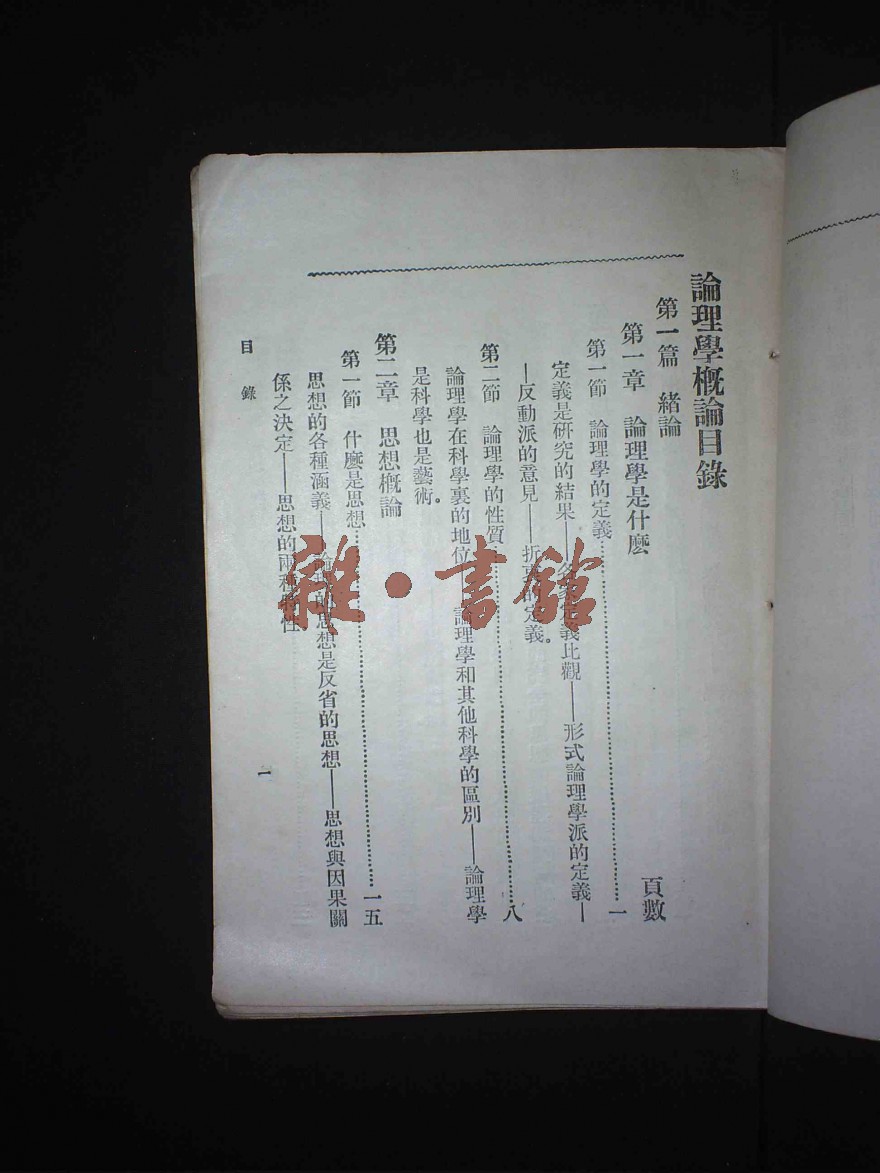 論理學概論目錄
第一篇 緒論
頁數
第一章 論理學是什麽
第一節 論理學的定義……一
定義是研究的結果——各家定義比觀——形式論理學派的定義—
—反動派的意見——折衷的定義。
第二節 論理學的性質……八
論理學在科學裏的地位——論理學和其他科學的區別——論理學
是科學也是藝術。
第二章 思想概論
第一節 什麽是思想……一五
思想的各種涵義——論理的思想是反省的思想——思想與因果關
係之決定——思想的兩種特性
目錄
一
雜·書館